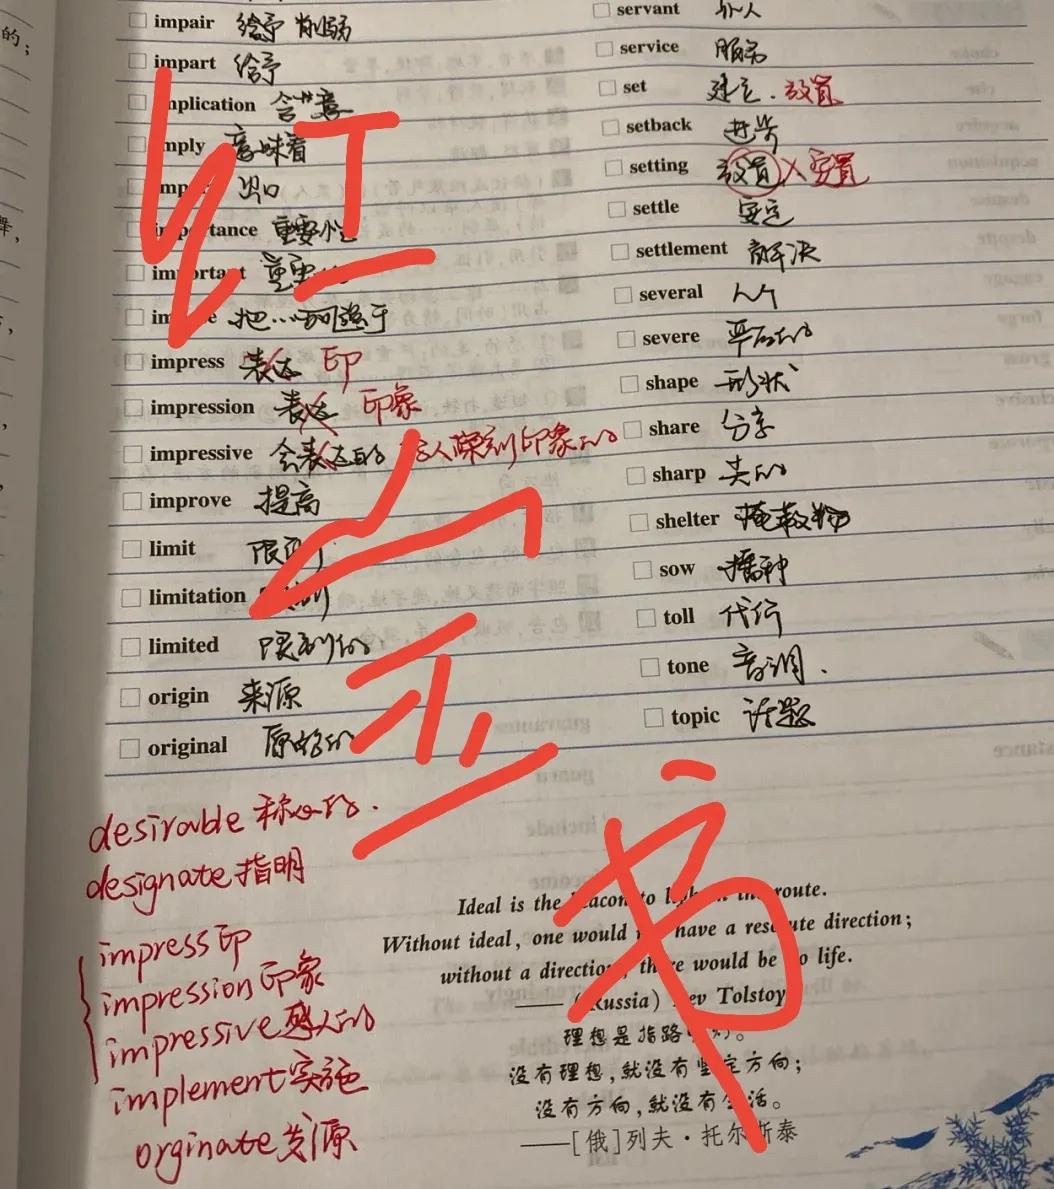 impair 给予 削弱
impart 给予
mplication 含意
mply 意味着
出口
importance 重要性
important
把…强于
impress 表达 印
impression 表达 印象
impressive 会表达的 人深刻印象的
improve 提高
limit
limitation
limited 限制的
origin 来源
original 原始的
servant 仆人
service 服务
set 建立.放置
setback 进步
setting 放置 安置
settle 安定
settlement 解决
several 几个
severe 严厉的
shape 形状
share 分享
sharp 尖的
shelter 掩
sow 播种
toll 代行
tone 音调.
topic 话题
红
宝
书
desirable 称心的.
designate 指明
impress 印
impression 印象
impressive 感人的
implement 实施
orginate 发源
Ideal is the to the route.
Without ideal, one would have a direction;
without a direction, there would be no life.
——(Russia) Lev Tolstoy
理想是指路。
没有理想,就没有坚定方向;
没有方向,就没有生活。
——[俄]列夫·托尔斯泰